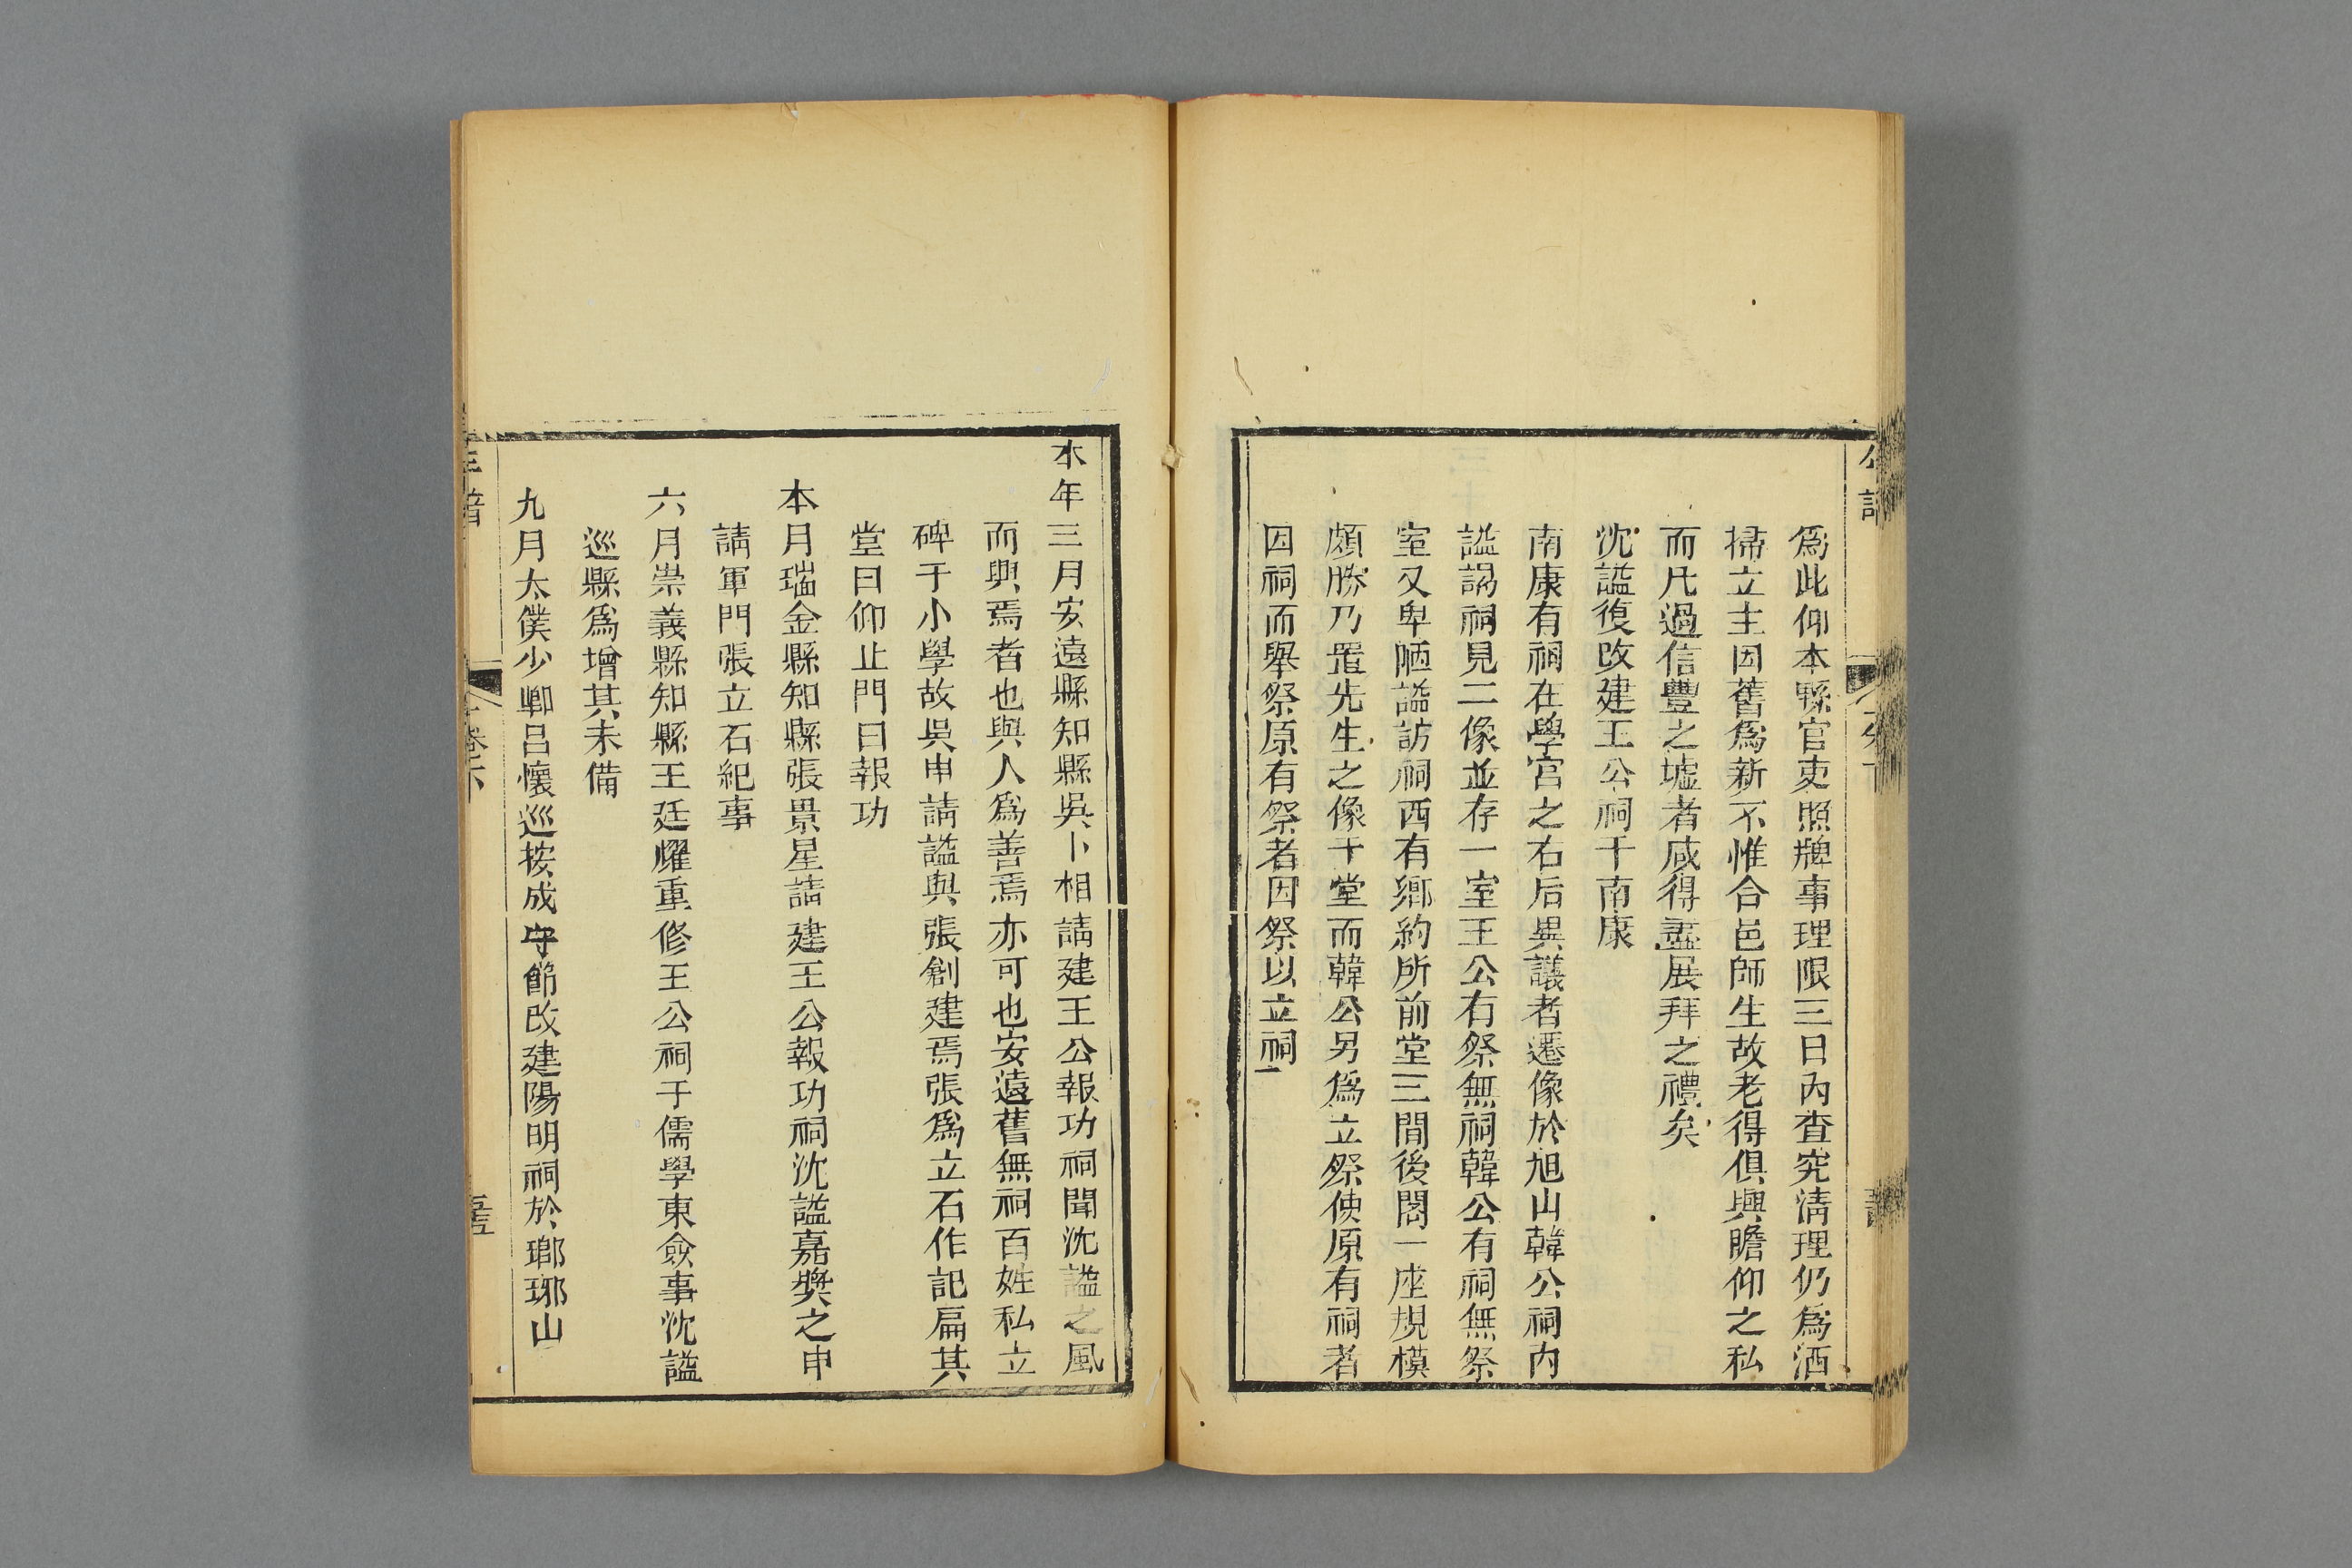 爲此仰本縣官吏照牌事理限三日內查究淸理仍爲洒
掃立主因舊爲新不惟合邑師生故老得俱興瞻仰之私
而凡過信豐之墟者咸得盡展拜之禮矣
沈謐復改建王公祠于南康
南康有祠在學宮之右后異議者遷像於旭山韓公祠內
謐謁祠見二像並存一室王公有祭無祠韓公有祠無祭
室又卑陋謐訪祠西有鄉約所前堂三間後閣一座規模
頗勝乃置先生之像于堂而韓公另爲立祭使原有祠者
因祠而舉祭原有祭者因祭以立祠
本年三月安遠縣知縣吳卜相請建王公報功祠聞沈謐之風
而興焉者也與人爲善焉亦可也安遠舊無祠百姓私立
碑于小學故吳申請謐與張創建焉張爲立石作記扁其
堂曰仰止門曰報功
本月瑞金縣知縣張景星請建王公報功祠沈謐嘉獎之申
請軍門張立石紀事
六月崇義縣知縣王廷耀重修王公祠于儒學東僉事沈謐
巡縣爲增其未備
九月太僕少卿呂懷巡按成守節改建陽明祠於瑯琊山
年譜
卷下